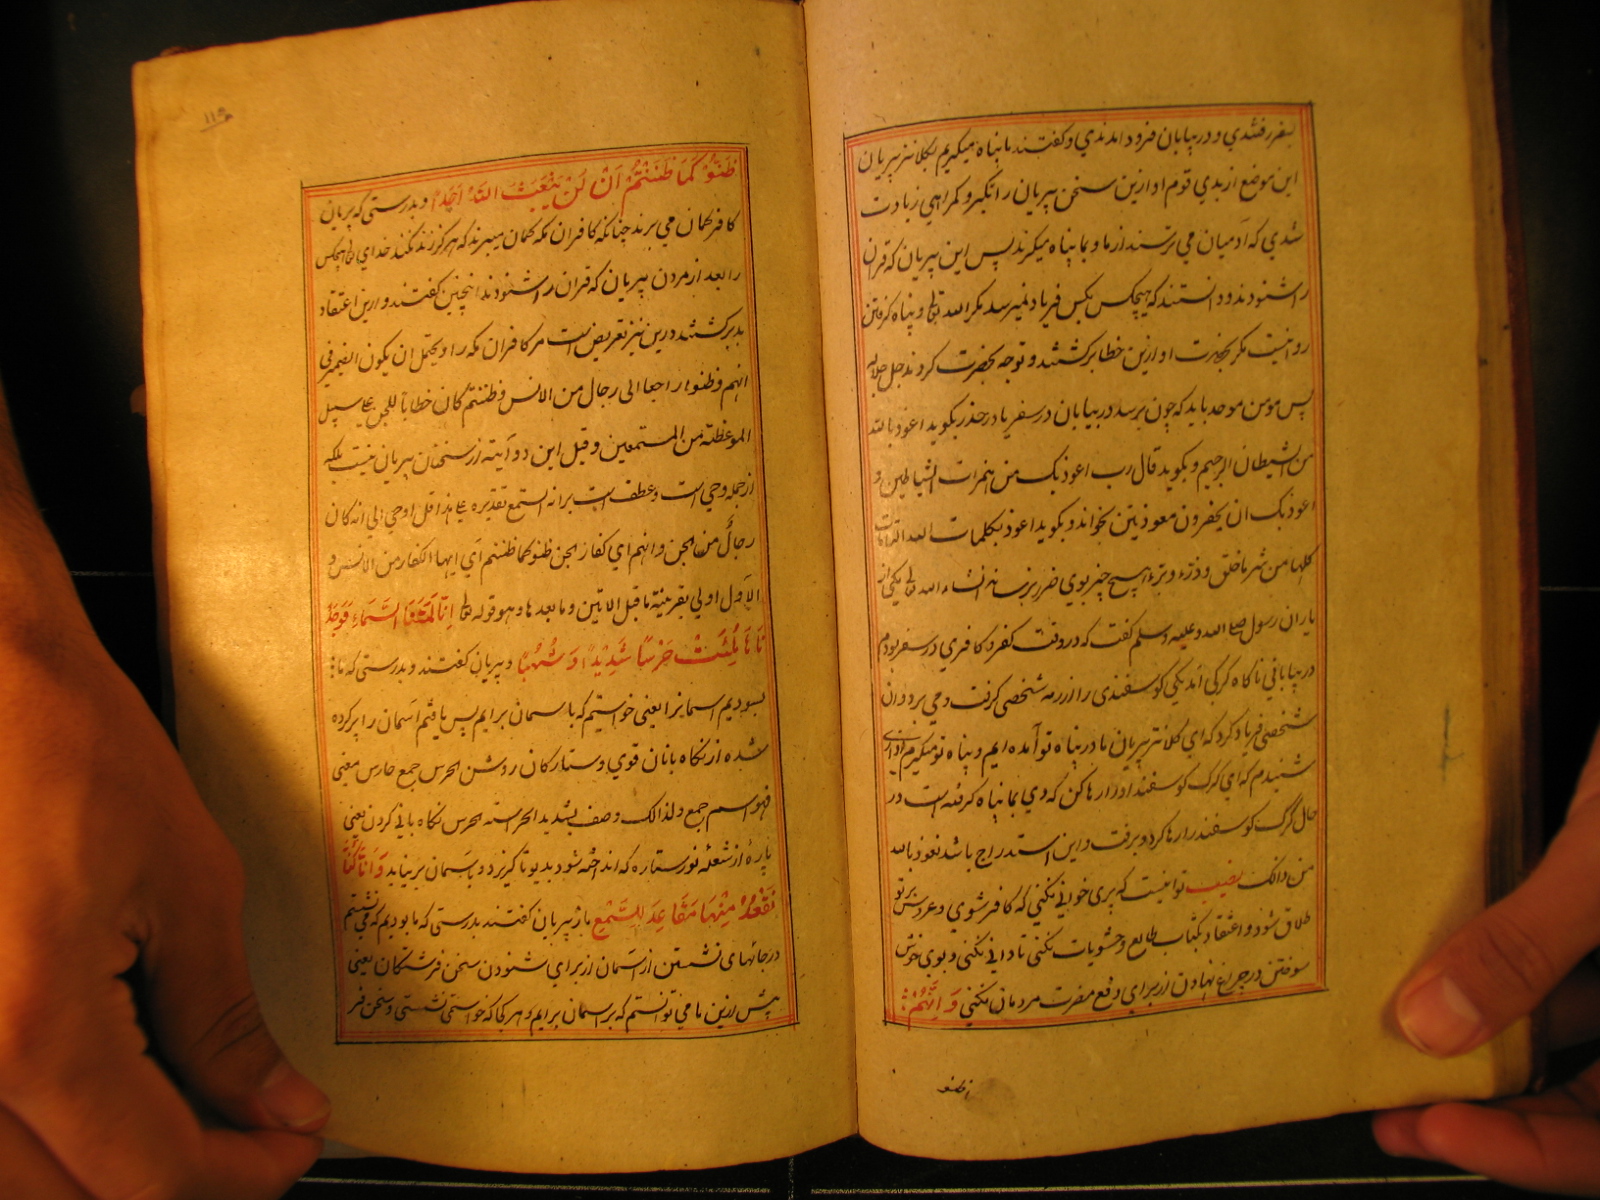 بسفر رفتندي و در بيابان فرود آمدندي و گفتند ما پناه ميگيريم بكلانتر پريان
اين موضع از بدي قوم او ازين سخن پريان را تكبر و كمراهي زيادت
شدي كه آدميان مي ترسند از ما و بما پناه ميگيرند پس اين پريان كه قران
را شنودند و دانستند كه هيچكس بكس فرياد نميرسد مكر الله تعالي و پناه كرفتن
روا نيست مكر بحضرت او ازين خطا بركشتند و توجه بحضرت كردند جل جلاله
پس مومن موحد بايد كه چون برسد در بيابان در سفر يا در حذر بكويد اعوذ بالله
من الشيطان الرجيم و بكويد قال رب اعوذ بك من همزات الشياطين و
اعوذ بك ان يحضرون معوذتين بخواند و بكويد اعوذ بكلمات الله التامات
كلها من شر ما خلق و ذرء و برء هيچ چيز بوي ضرر نرساند انشاء الله تعالي يكي از
ياران رسول صلي الله و عليه وسلم كفت كه در وقت كفر و كافري در سفر بودم
در بياباني ناكاه كركي آمد يكي كوسفندي را از رمه شخصي كرفت و مي برد و آن
شخصي فرياد كرد كه اي كلانتر پريان ما در پناه تو آمده ايم و پناه تو ميكيرم آوازي
شنيدم كه اي كرك كوسفند او را رها كن كه وي بما پناه كرفته است در
حال كرك كوسفند را رها كرد و برفت و اين استدراج باشد نعوذ بالله
من ذالك نصيب تو انيست كه پري خواني نكني كه كافر شوي و عروس بر تو
طلاق شود و اعتقاد بكتاب طالع و حشويات نكني تا داني نكني و بوي خوش
سوختن در چراغ نهادن از براي دفع مضرت مردمان نكني وَاَنَّهُمْ
ظنو
١١٩
ظَنُّوْ كَمَا ظَنَنْتُمْ اَنْ لَنْ يَبْعَثَ اللهُ اَحَدًا و بدرستي كه پريان
كافر كمان مي برند چنانكه كافران مكه كمان ميبرند كه هركز زنده نكند خداي تعالي هيچكس
را بعد از مردن پريان كه قران را شنودند اينچنين كفتند و ازين اعتقاد
بد بركشتند درين نيز تعريض است مر كافران مكه را و يحتمل ان يكون الضمير في
انهم و ظنوا راجعا الي رجال من الانس و ظننتم كان خطابا للجن علي سبيل
الموعظة من المستمعين و قيل اين دو آيته از سخنان پريان نيست بلكه
از جمله وحي است و عطف است بر انه استمع تقديره علي هذا قل اوحي الي انه كان
رجال من الجن و انهم اي كفار الجن ظنو كما ظننتم اي ايها الكفار من الانس و
الاول اولي بقرينة ما قبل الايتين و ما بعدها و هو قوله تعالي اِنَّا لَمَسْنَا السَّمَاءَ فَوَجَدْ
نَاهَا مُلِئَتْ حَرَسًا شَدِيْدًا وَشُهُبًا و پريان كفتند و بدرستي كه ما
بسوديم اسمانرا يعني خواستيم كه بآسمان برايم پس يافتيم آسمان را پر كرده
شده از نكاه بانان قوي و ستاركان روشن الحرس جمع حارس معني
فهو اسم جمع و لذالك وصف بشديد الحراسته الحرس نكاه باني كردن يعني
پارۀ از شعله نور ستاره كه انداخته شود بديو تا كريزد و بآسمان برنيايد وَاَنَّا كُنَّا
نَقْعُدُ مِنْهَا مَقَاعِدَ لِلسَّمْعِ باز پريان كفتند بدرستي كه ما بوديم كه مي نشستيم
در جايهاي نشستن از آسمان از براي شنودن سخن فرشتكان يعني
پيش ازين ما مي توانستم كه بر اسمان برايم و هر كجا كه خواستي نشستي و سخن فر